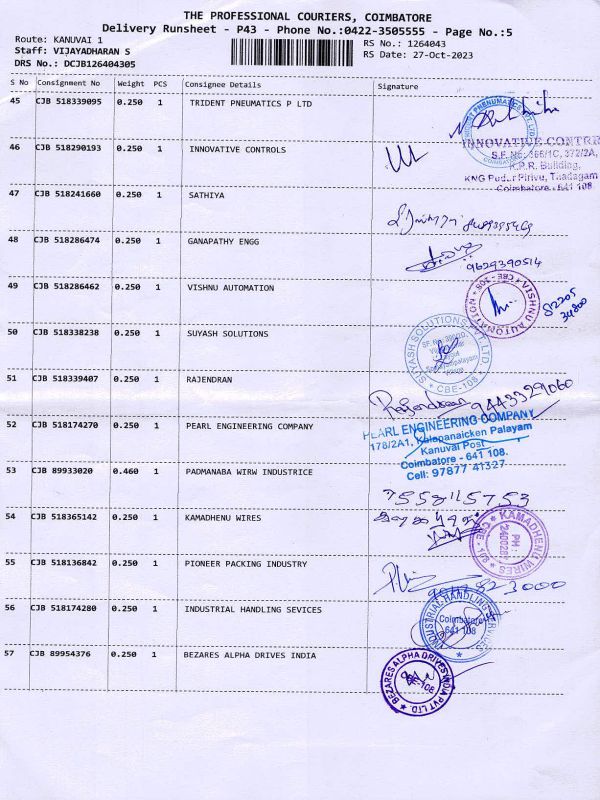 THE PROFESSIONAL COURIERS, COIMBATORE
Delivery Runsheet - P43 - Phone No.:0422-3505555 - Page No.:5
Route: KANUVAI 1
RS No.: 1264043
Staff: VIJAYADHARAN S
RS Date: 27-Oct-2023
DRS No.: DCJB126404305
S No Consignment No Weight PCS Consignee Details Signature
45 CJB 518339095 0.250 1 TRIDENT PNEUMATICS P LTD
46 CJB 518290193 0.250 1 INNOVATIVE CONTROLS
INNOVATIVE CONTR
S.F. No. 366/1C, 372/2A,
K.P.R. Building,
KNG Pudur Pirivu, Thadagam
Coimbatore - 641 108
47 CJB 518241660 0.250 1 SATHIYA
48 CJB 518286474 0.250 1 GANAPATHY ENGG
9629390514
49 CJB 518286462 0.250 1 VISHNU AUTOMATION
VISHNU AUTOMATION
CBE - 108
82205
34800
50 CJB 518338238 0.250 1 SUYASH SOLUTIONS
SUYASH SOLUTIONS PVT. LTD
CBE-108
51 CJB 518339407 0.250 1 RAJENDRAN
Rajendran 9443329060
52 CJB 518174270 0.250 1 PEARL ENGINEERING COMPANY
PEARL ENGINEERING COMPANY
178/2A1, Kalapanaicken Palayam
Kanuvai Post
Coimbatore - 641 108.
Cell: 97877 41327
53 CJB 89933020 0.460 1 PADMANABA WIRW INDUSTRICE
7558115753
54 CJB 518365142 0.250 1 KAMADHENU WIRES
KAMADHENU WIRES
CBE - 108
PH
55 CJB 518136842 0.250 1 PIONEER PACKING INDUSTRY
56 CJB 518174280 0.250 1 INDUSTRIAL HANDLING SEVICES
INDUSTRIAL HANDLING SERVICES
Coimbatore
641 108
57 CJB 89954376 0.250 1 BEZARES ALPHA DRIVES INDIA
BEZARES ALPHA DRIVES INDIA PVT LTD.
CBE-108